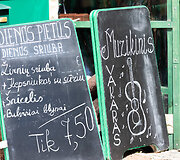 DIENOS PIETŪS
DIENOS SRIUBA
Žirnių sriuba
+ Kepsniukas su sūriu
Šnicelis
Bulviniai blynai
Tik 7,50
Muzikinis
VAKARAS